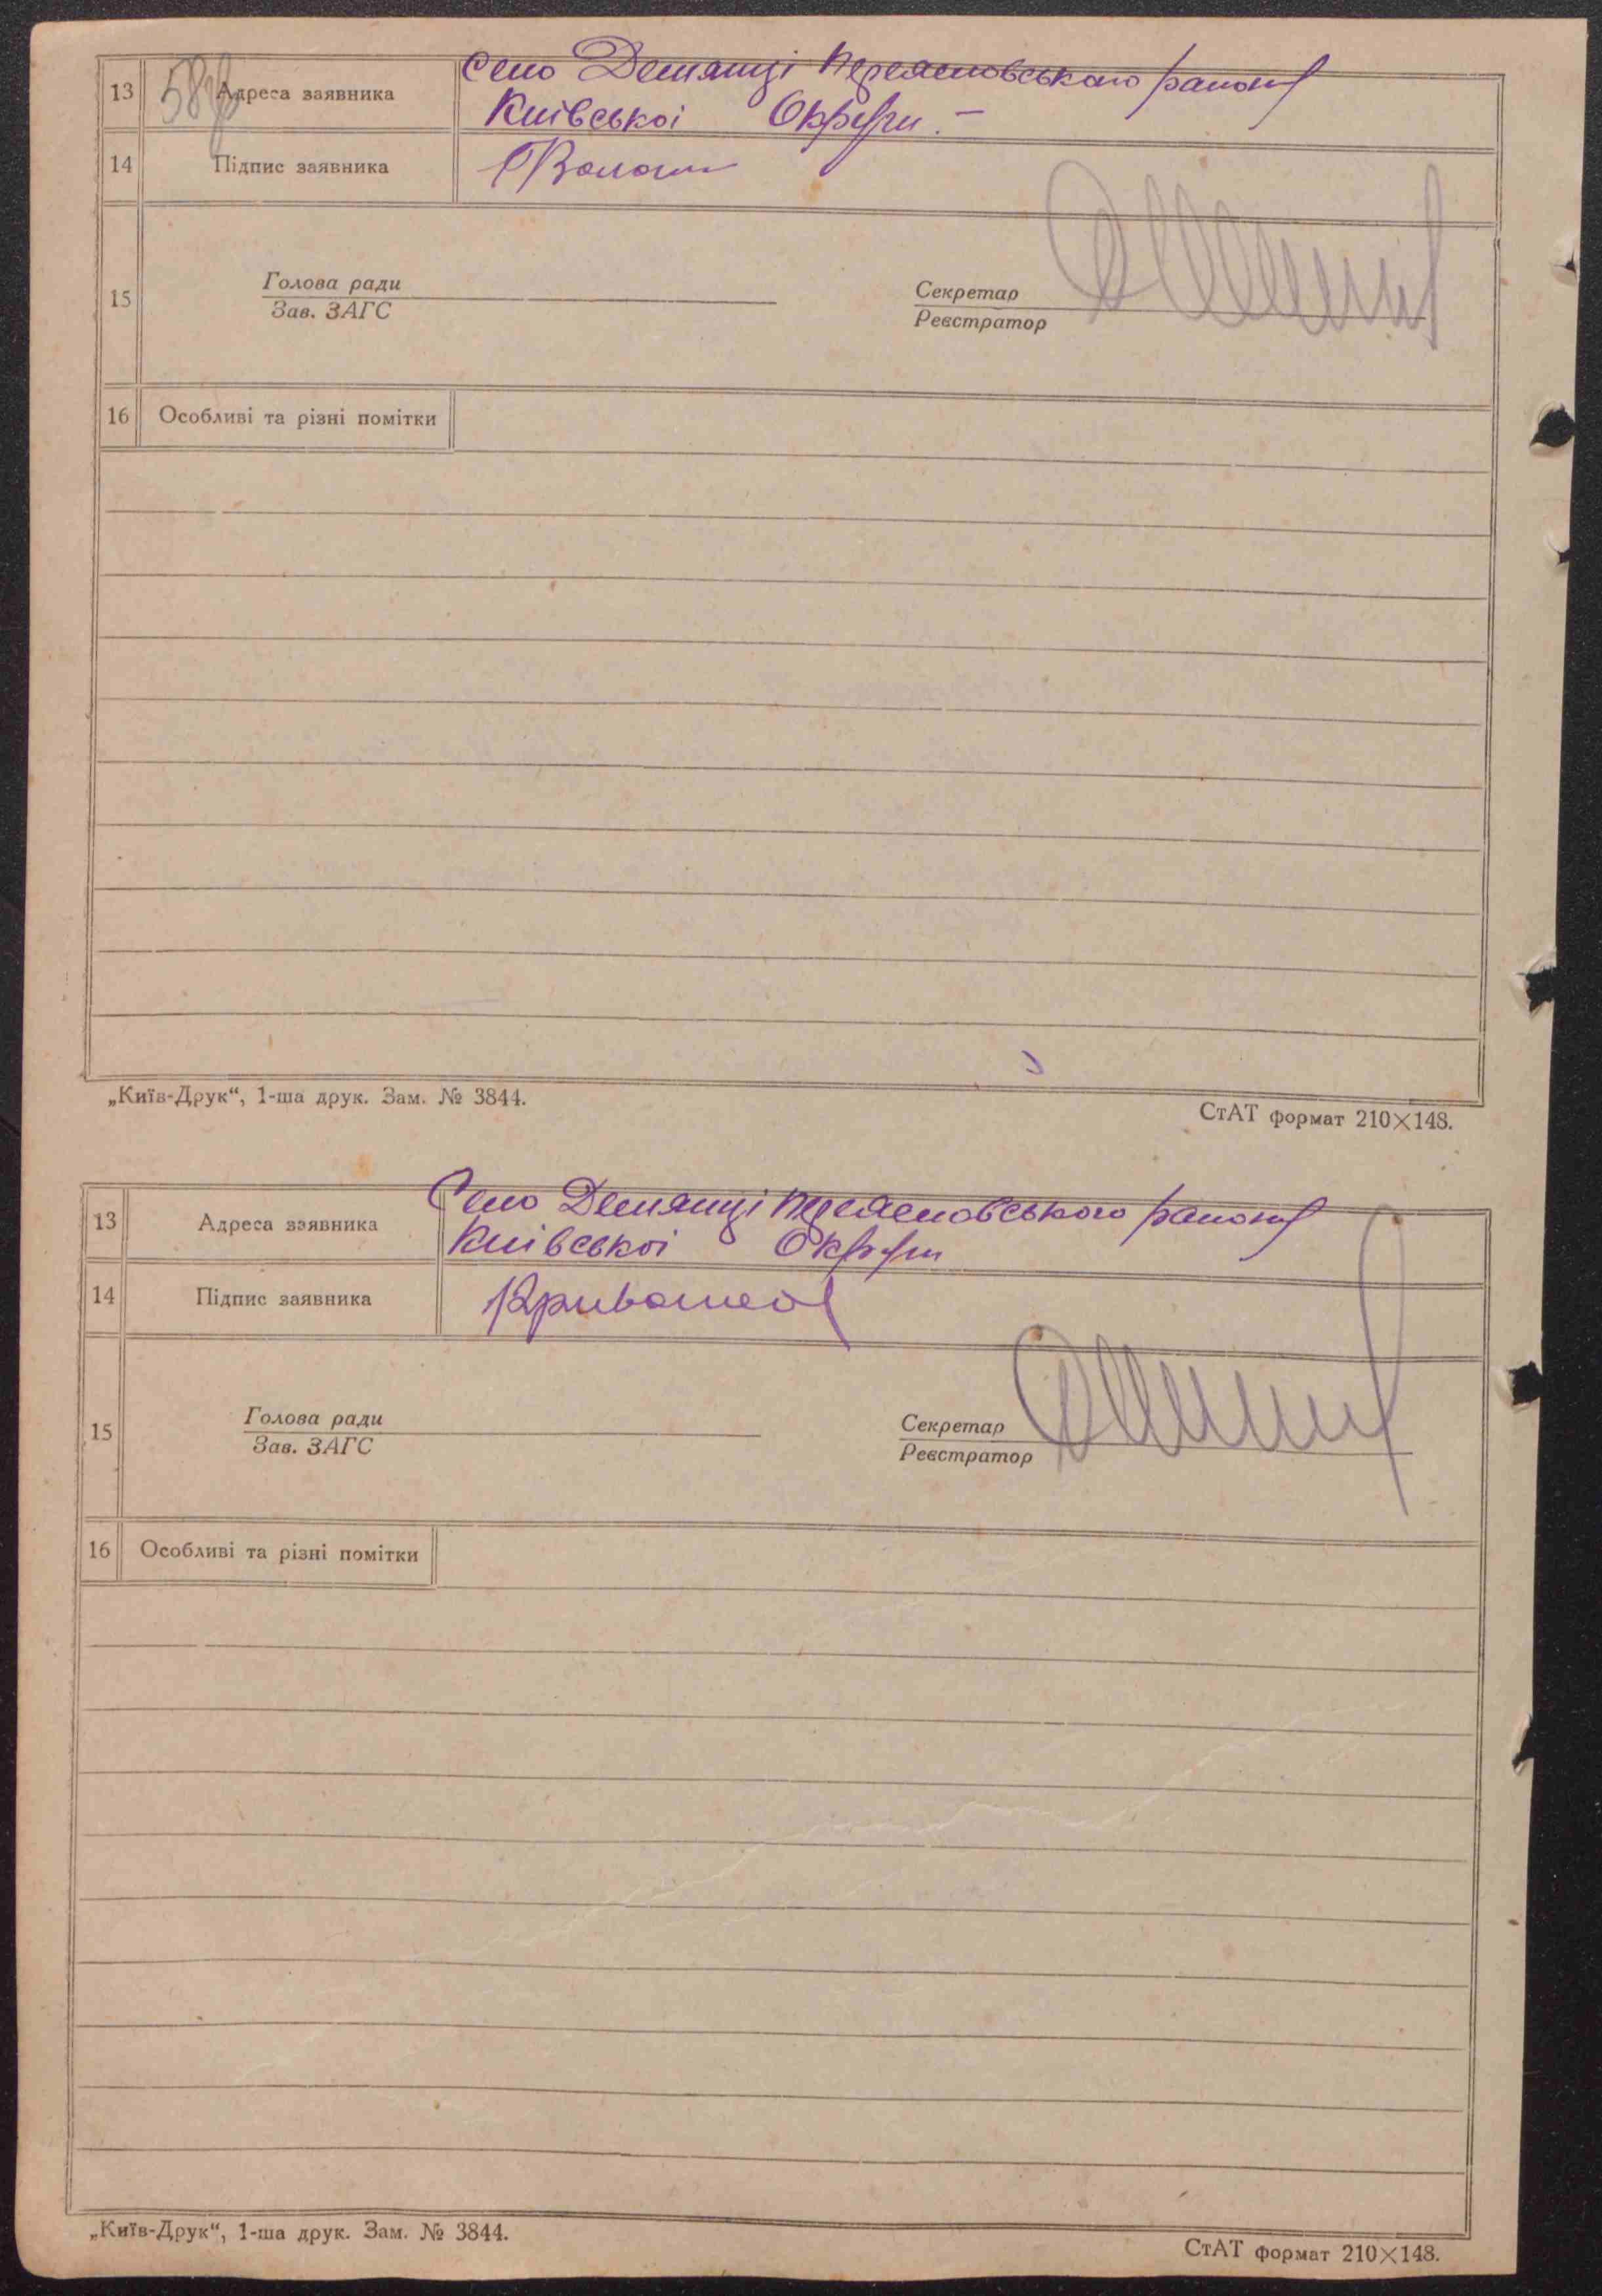 Село Демянці Переяславського району
13 58 Адреса заявника
Київської Округи. –
14 Підпис заявника
Голова ради
Секретар
15
Зав. ЗАГС
Реєстратор
16 Особливі та різні помітки
„Київ-Друк“, 1-ша друк. Зам. № 3844.
СтАТ формат 210×148.
Село Демянці Переяславського району
13 Адреса заявника
Київської Округи
14 Підпис заявника
Голова ради
Секретар
15
Зав. ЗАГС
Реєстратор
16 Особливі та різні помітки
„Київ-Друк“, 1-ша друк. Зам. № 3844.
СтАТ формат 210×148.